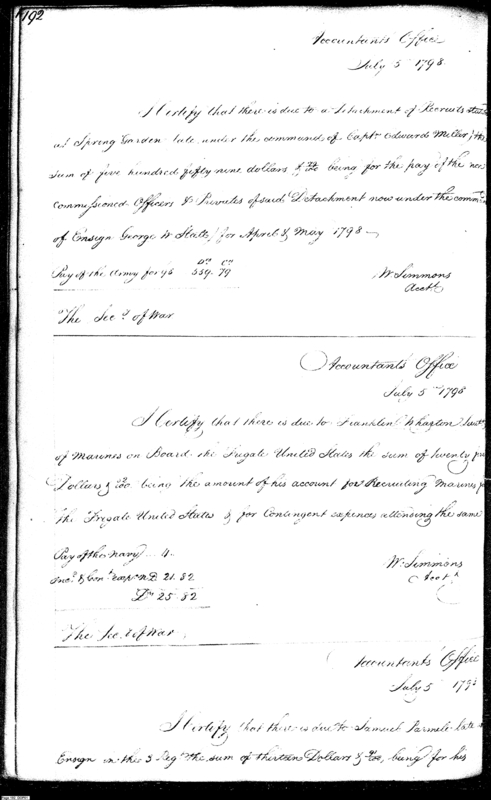 192
Accountants Office
July 5th 1798
I Certify that there is due to a detachment of Recruits
at Spring Garden late under the command of Captn Edward Miller, the
sum of five hundred fifty nine dollars & 79/100 being for the pay of the non
commissioned Officers & Privates of said Detachment now under the
of Ensign George W for April & May 1798
Ds Cs
Pay of the Army for 98 559. 79
W Simmons
Acctt
The Secy of War
Accountants Office
July 5th 1798
I Certify that there is due to Franklin Wharton
of Marines on Board the Frigate United States the sum of twenty
Dollars & being the amount of his account for Recruiting Marines
the Frigate United States & for Contingent expences attending the same
Pay of the Navy 4.
& Cont. expns D. 21. 82
Ds 25. 82
W Simmons
Acctt
The Sec. of War
Accountants Office
July 5 179
I Certify that there is due to Samuel late
Ensign in the 3 Regt the sum of thirteen Dollars & being for his